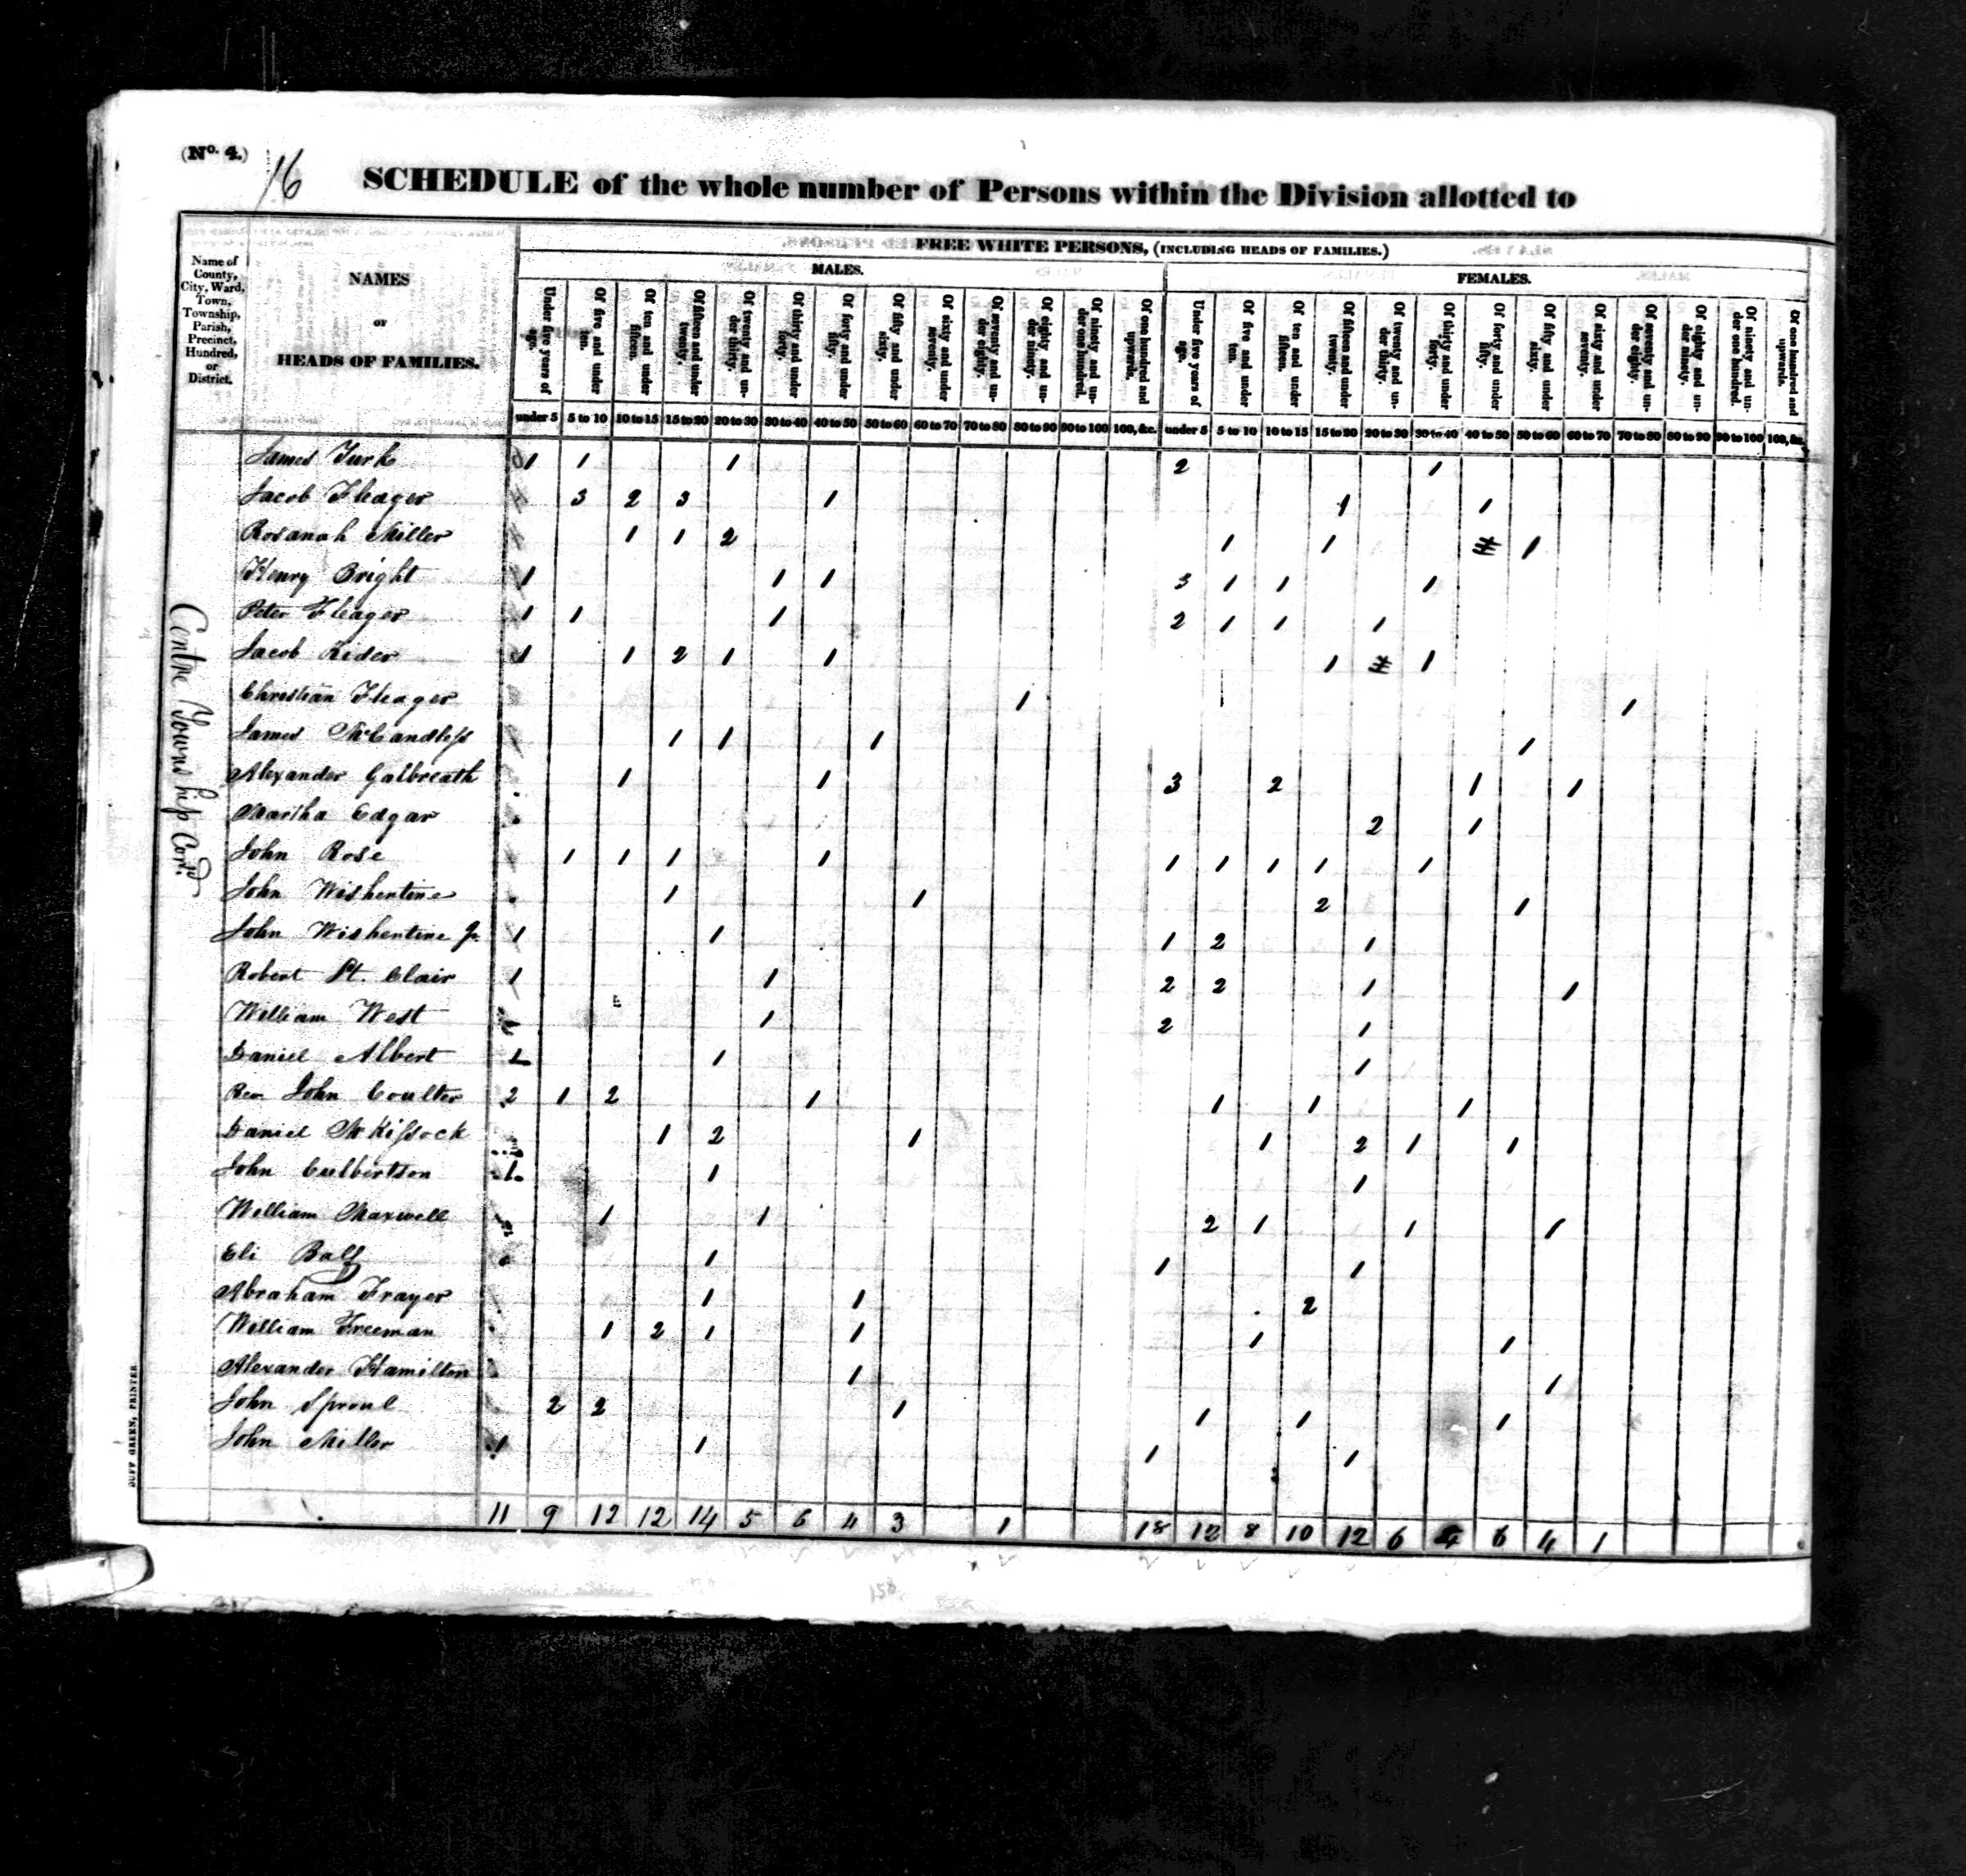 (No. 4.)
16
SCHEDULE of the whole number of Persons within the Division allotted to
FREE WHITE PERSONS, (INCLUDING HEADS OF FAMILIES.)
MALES. FEMALES.
Name of County, City, Ward, Town, Township, Parish, Precinct, Hundred, or District.
NAMES
OF
HEADS OF FAMILIES.
Under five years of age. Of five and under ten. Of ten and under fifteen. Of fifteen and under twenty. Of twenty and under thirty. Of thirty and under forty. Of forty and under fifty. Of fifty and under sixty. Of sixty and under seventy. Of seventy and under eighty. Of eighty and under ninety. Of ninety and under one hundred. Of one hundred and upwards. Under five years of age. Of five and under ten. Of ten and under fifteen. Of fifteen and under twenty. Of twenty and under thirty. Of thirty and under forty. Of forty and under fifty. Of fifty and under sixty. Of sixty and under seventy. Of seventy and under eighty. Of eighty and under ninety. Of ninety and under one hundred. Of one hundred and upwards.
under 5 5 to 10 10 to 15 15 to 20 20 to 30 30 to 40 40 to 50 50 to 60 60 to 70 70 to 80 80 to 90 90 to 100 100, &c. under 5 5 to 10 10 to 15 15 to 20 20 to 30 30 to 40 40 to 50 50 to 60 60 to 70 70 to 80 80 to 90 90 to 100 100, &c.
Centre Township Cont'd
James Turk 1 1 1 2 1
Jacob Fleager 3 2 3 1 1 1
Rosanah Miller 1 1 2 1 1 1
Henry Bright 1 1 1 3 1 1 1
Peter Fleager 1 1 1 2 1 1 1
Jacob Kider 1 1 2 1 1 1 1
Christian Fleager 1 1
James McCandless 1 1 1 1
Alexander Galbreath 1 1 3 2 1 1
Martha Edgar 2 1
John Rose 1 1 1 1 1 1 1 1 1
John Wishentine 1 1 2 1
John Wishentine Jr. 1 1 1 2 1
Robert St. Clair 1 1 2 2 1 1
William West 1 2 1
Daniel Albert 1 1 1
Rev John Coulter 2 1 2 1 1 1 1
Daniel McKissock 1 2 1 1 2 1 1
John Culbertson 1 1 1
William Maxwell 1 1 2 1 1 1
Eli Balf 1 1 1
Abraham Frayer 1 1 2
William Freeman 1 2 1 1 1 1
Alexander Hamilton 1 1
John Sproul 2 2 1 1 1 1
John Miller 1 1 1 1
11 9 12 12 14 5 6 4 3 1 18 12 8 10 12 6 4 6 4 1
DUFF GREEN, PRINTER